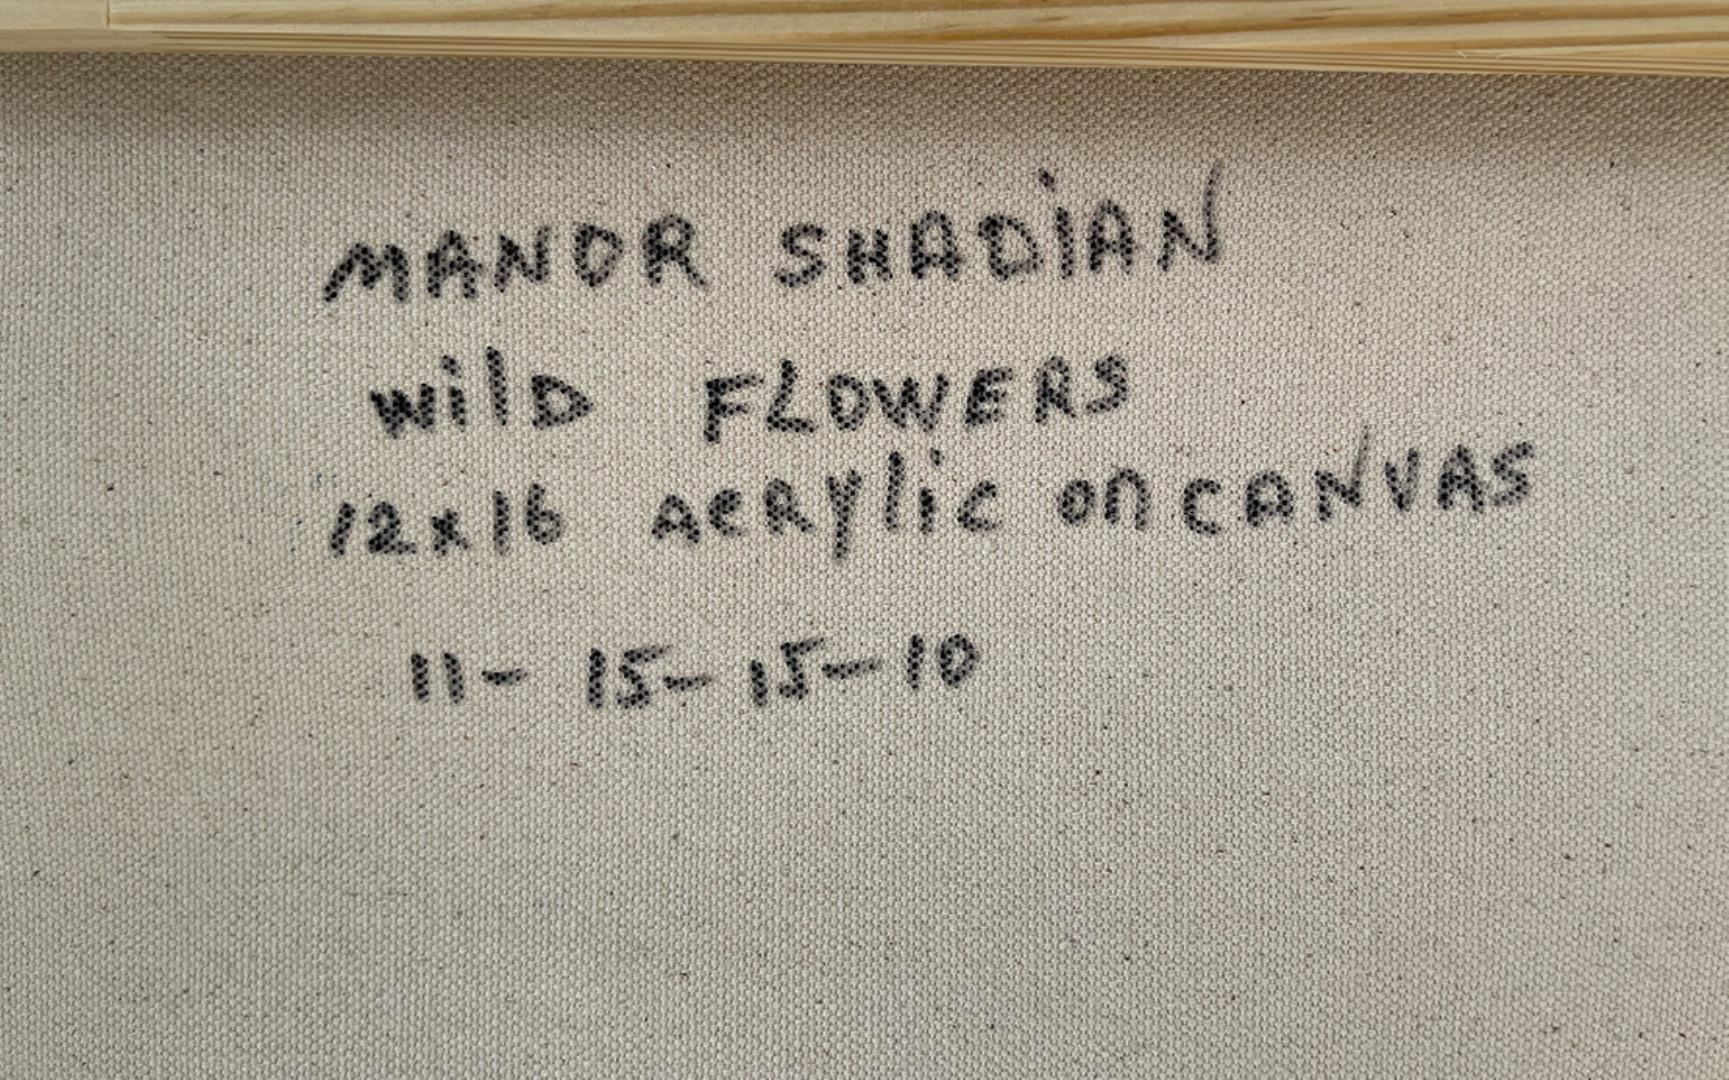 MANOR SHADiAN
wilD FLOWERS
12x16 AcRYlic on CANVAS
11- 15-15-10